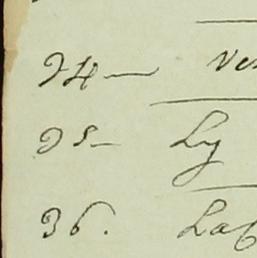 34— Ve
35— Ly
36. Las